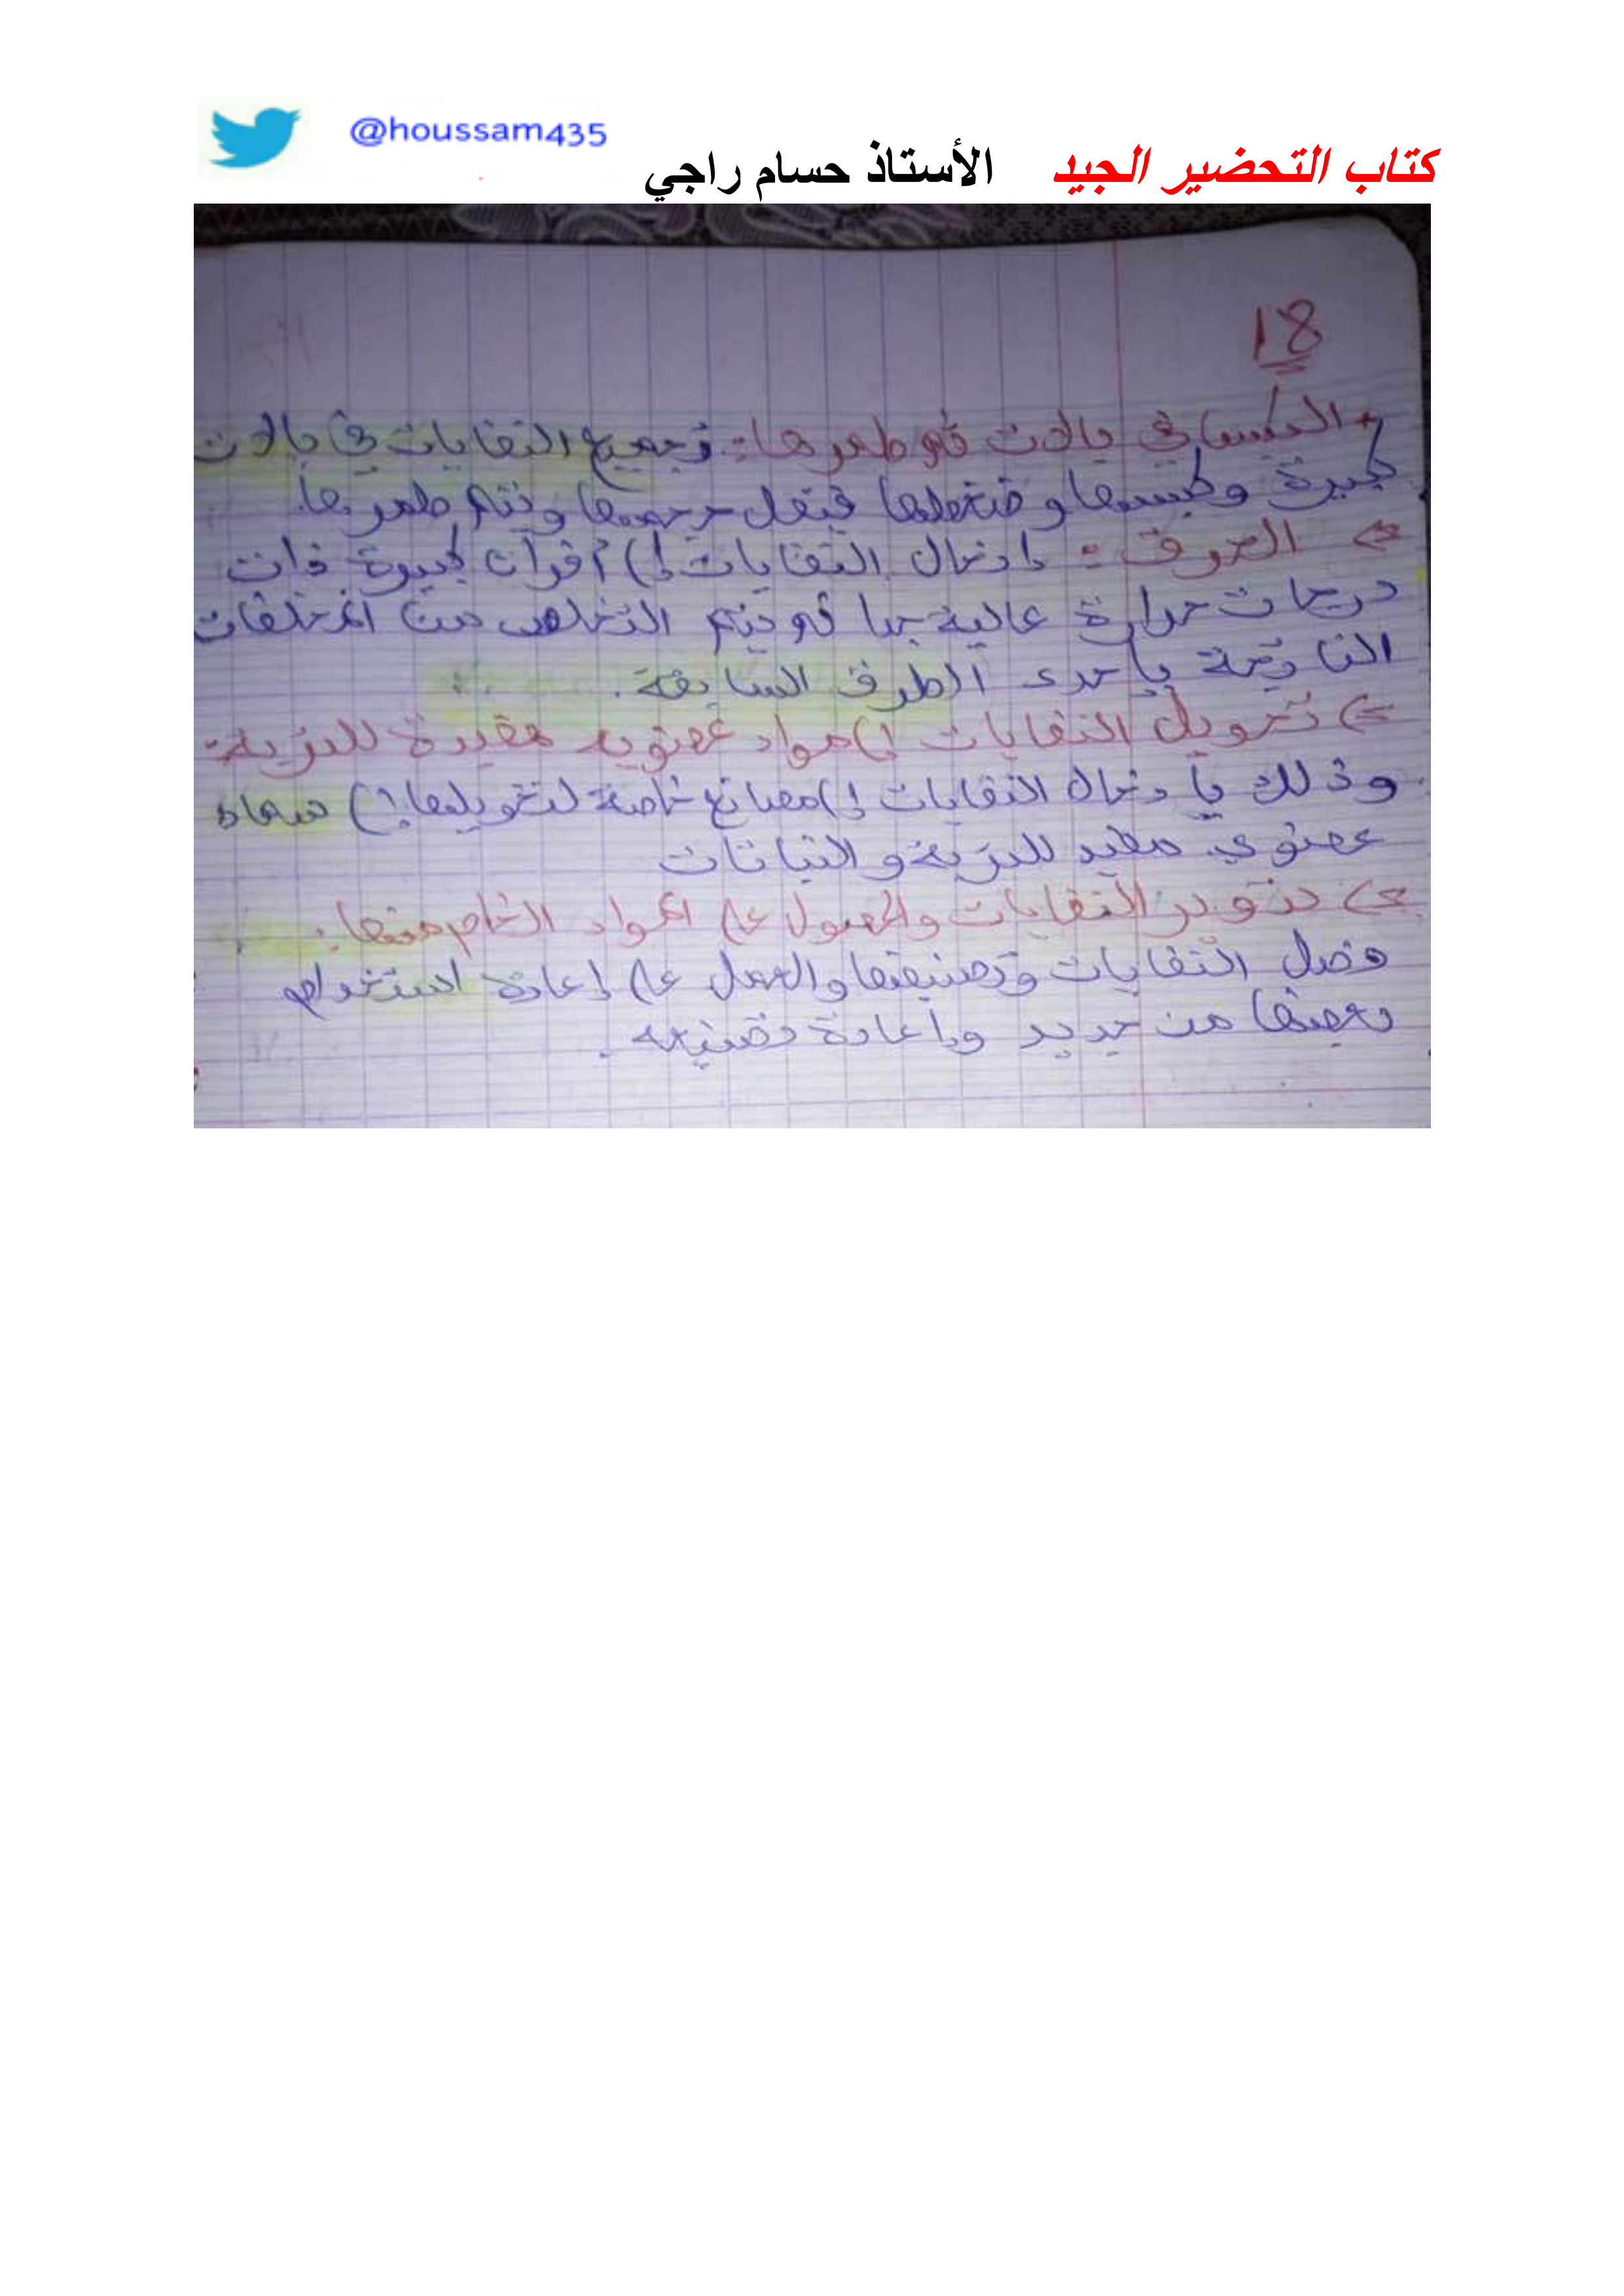 @houssam435
كتاب التحضير الجيد الأستاذ حسام راجي
18
+ الكبس في بالات ثم طمرها: تجميع النفايات في بالات
كبيرة وكبسها وضغطها فيقل حجمها ويتم طمرها.
=> الحرق: إدخال النفايات إلى أفران كبيرة ذات
درجات حرارة عالية جدا ثم يتم التخلص من المخلفات
الناتجة بإحدى الطرق السابقة.
=> تحويل النفايات إلى مواد عضوية مفيدة للتربة:
وذلك بإدخال النفايات إلى مصانع خاصة لتحويلها إلى سماد
عضوي مفيد للتربة والنباتات
=> تدوير النفايات والحصول على المواد الخام منها:
فصل النفايات وتصنيفها والعمل على إعادة استخدام
بعضها من جديد وإعادة تصنيعه.